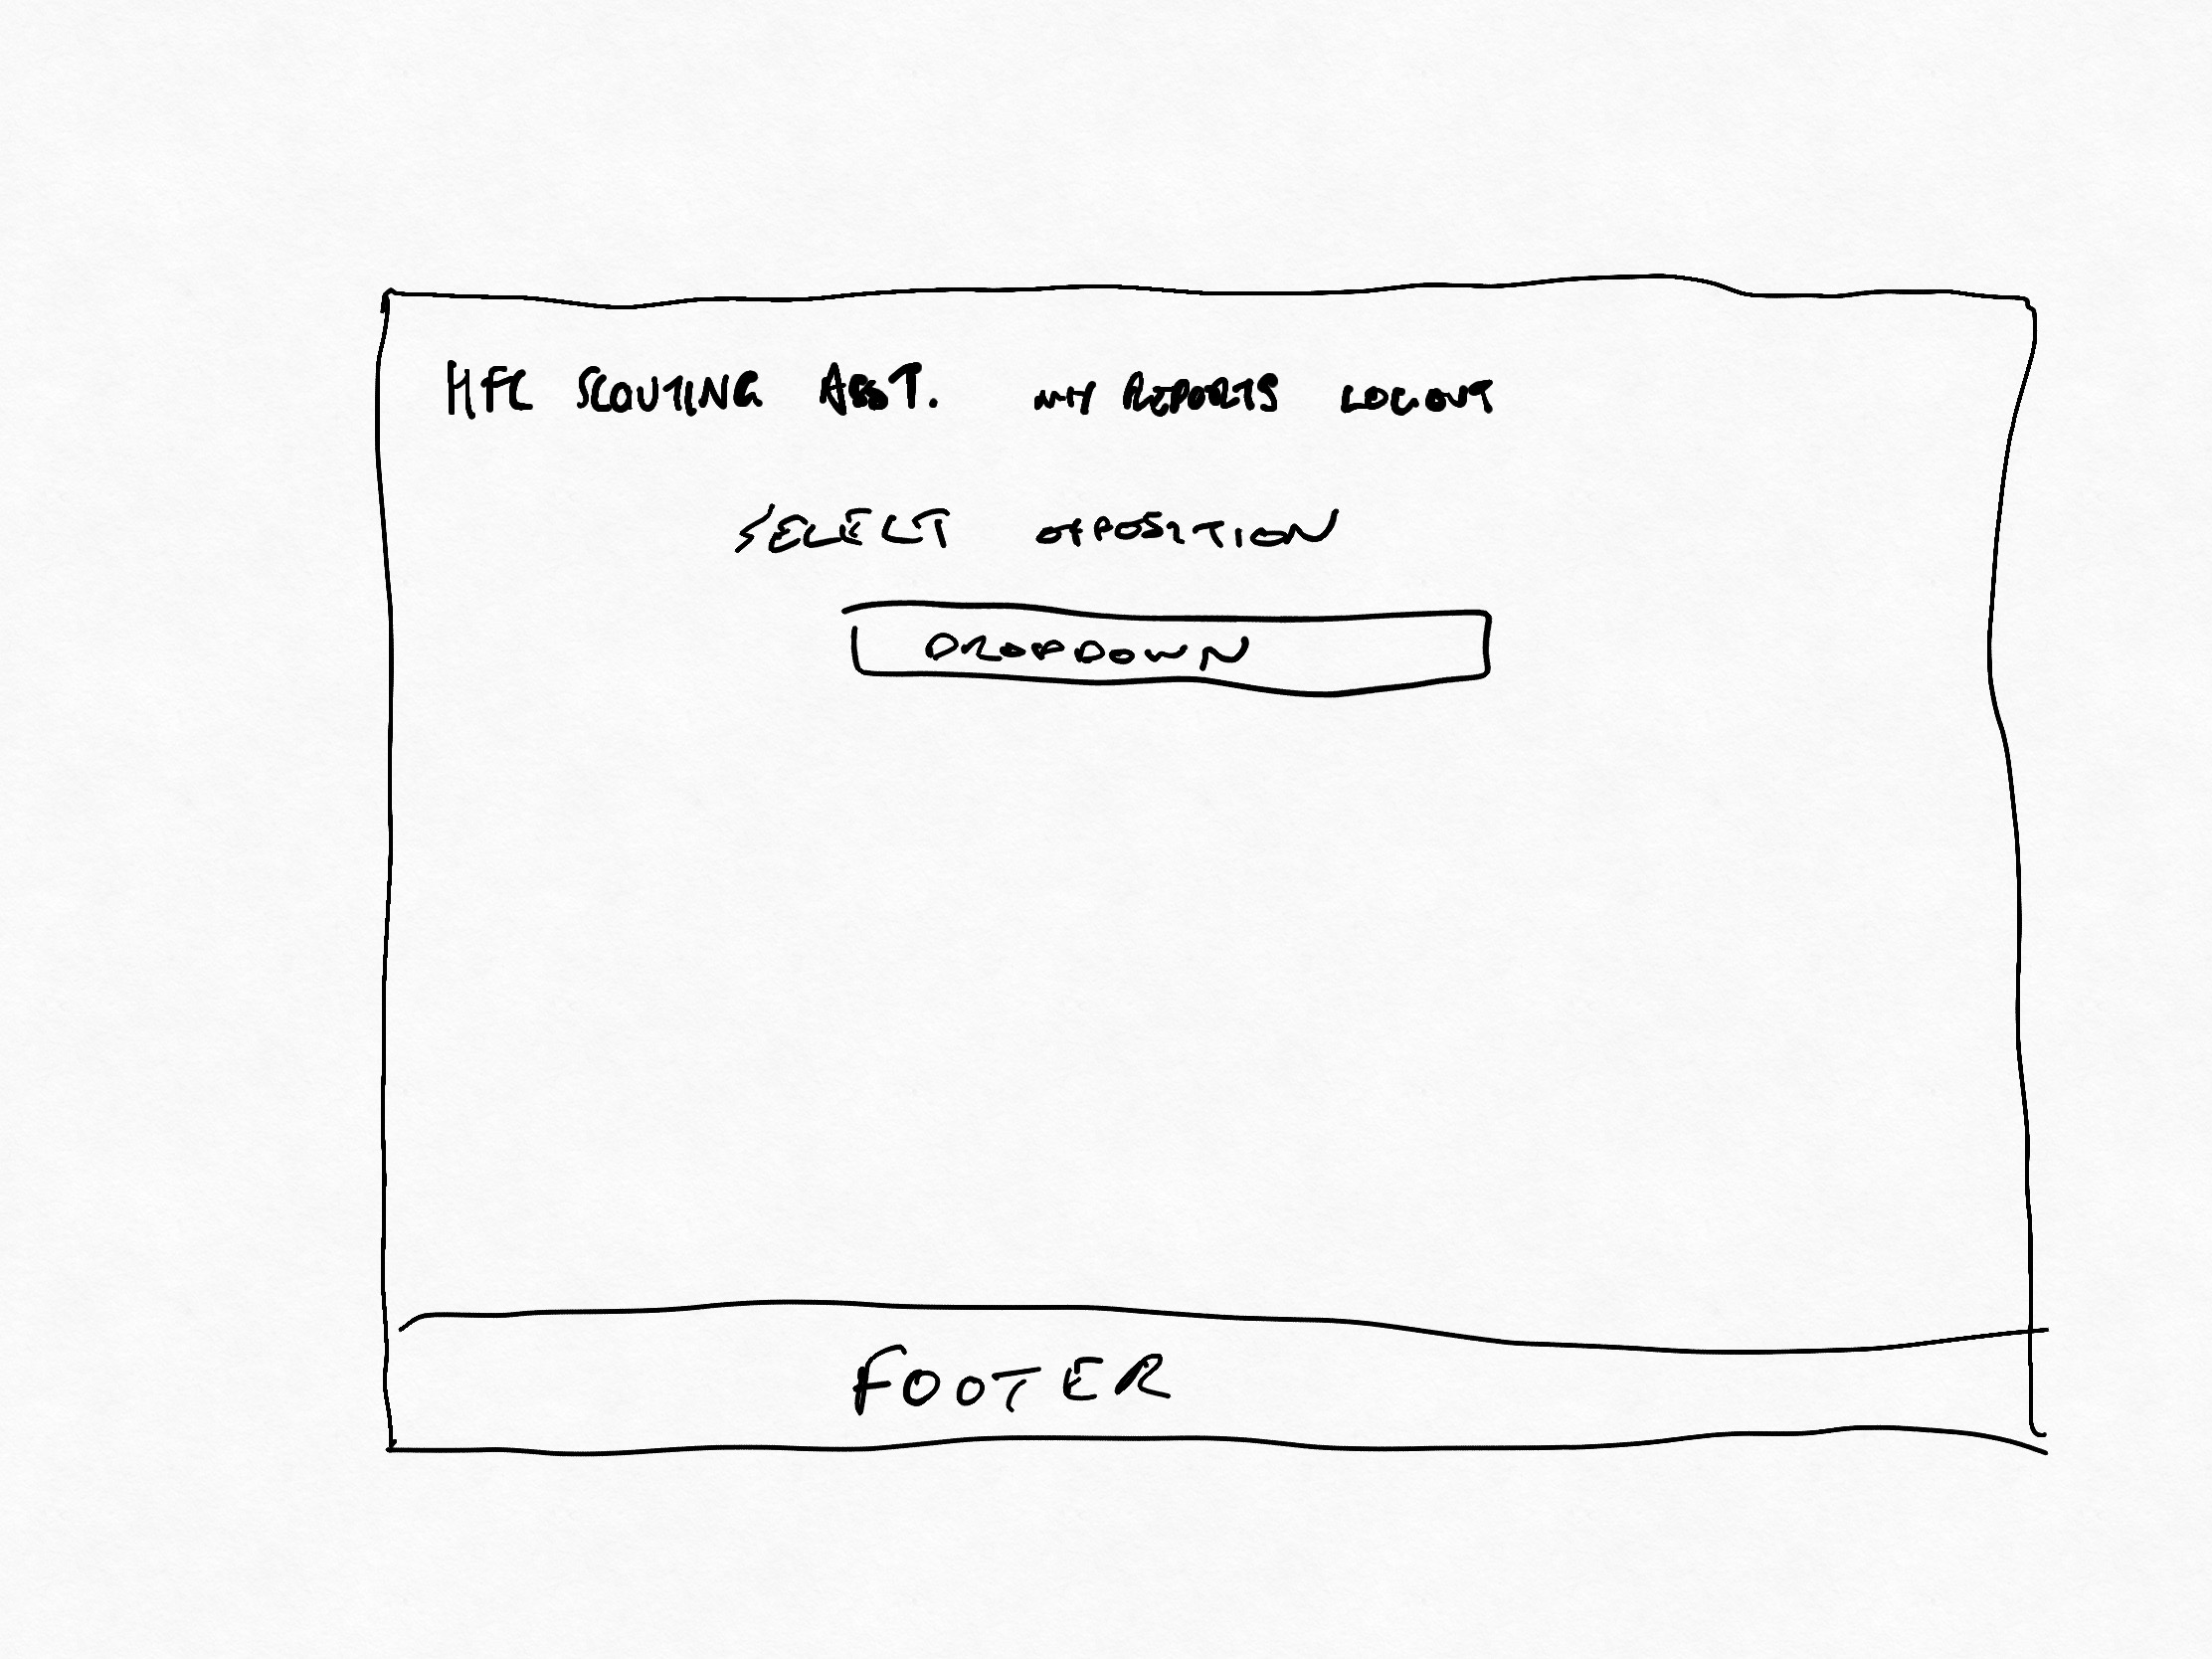 HFC SCOUTING ASST. MY REPORTS LOGOUT
SELECT OPPOSITION
DROPDOWN
FOOTER